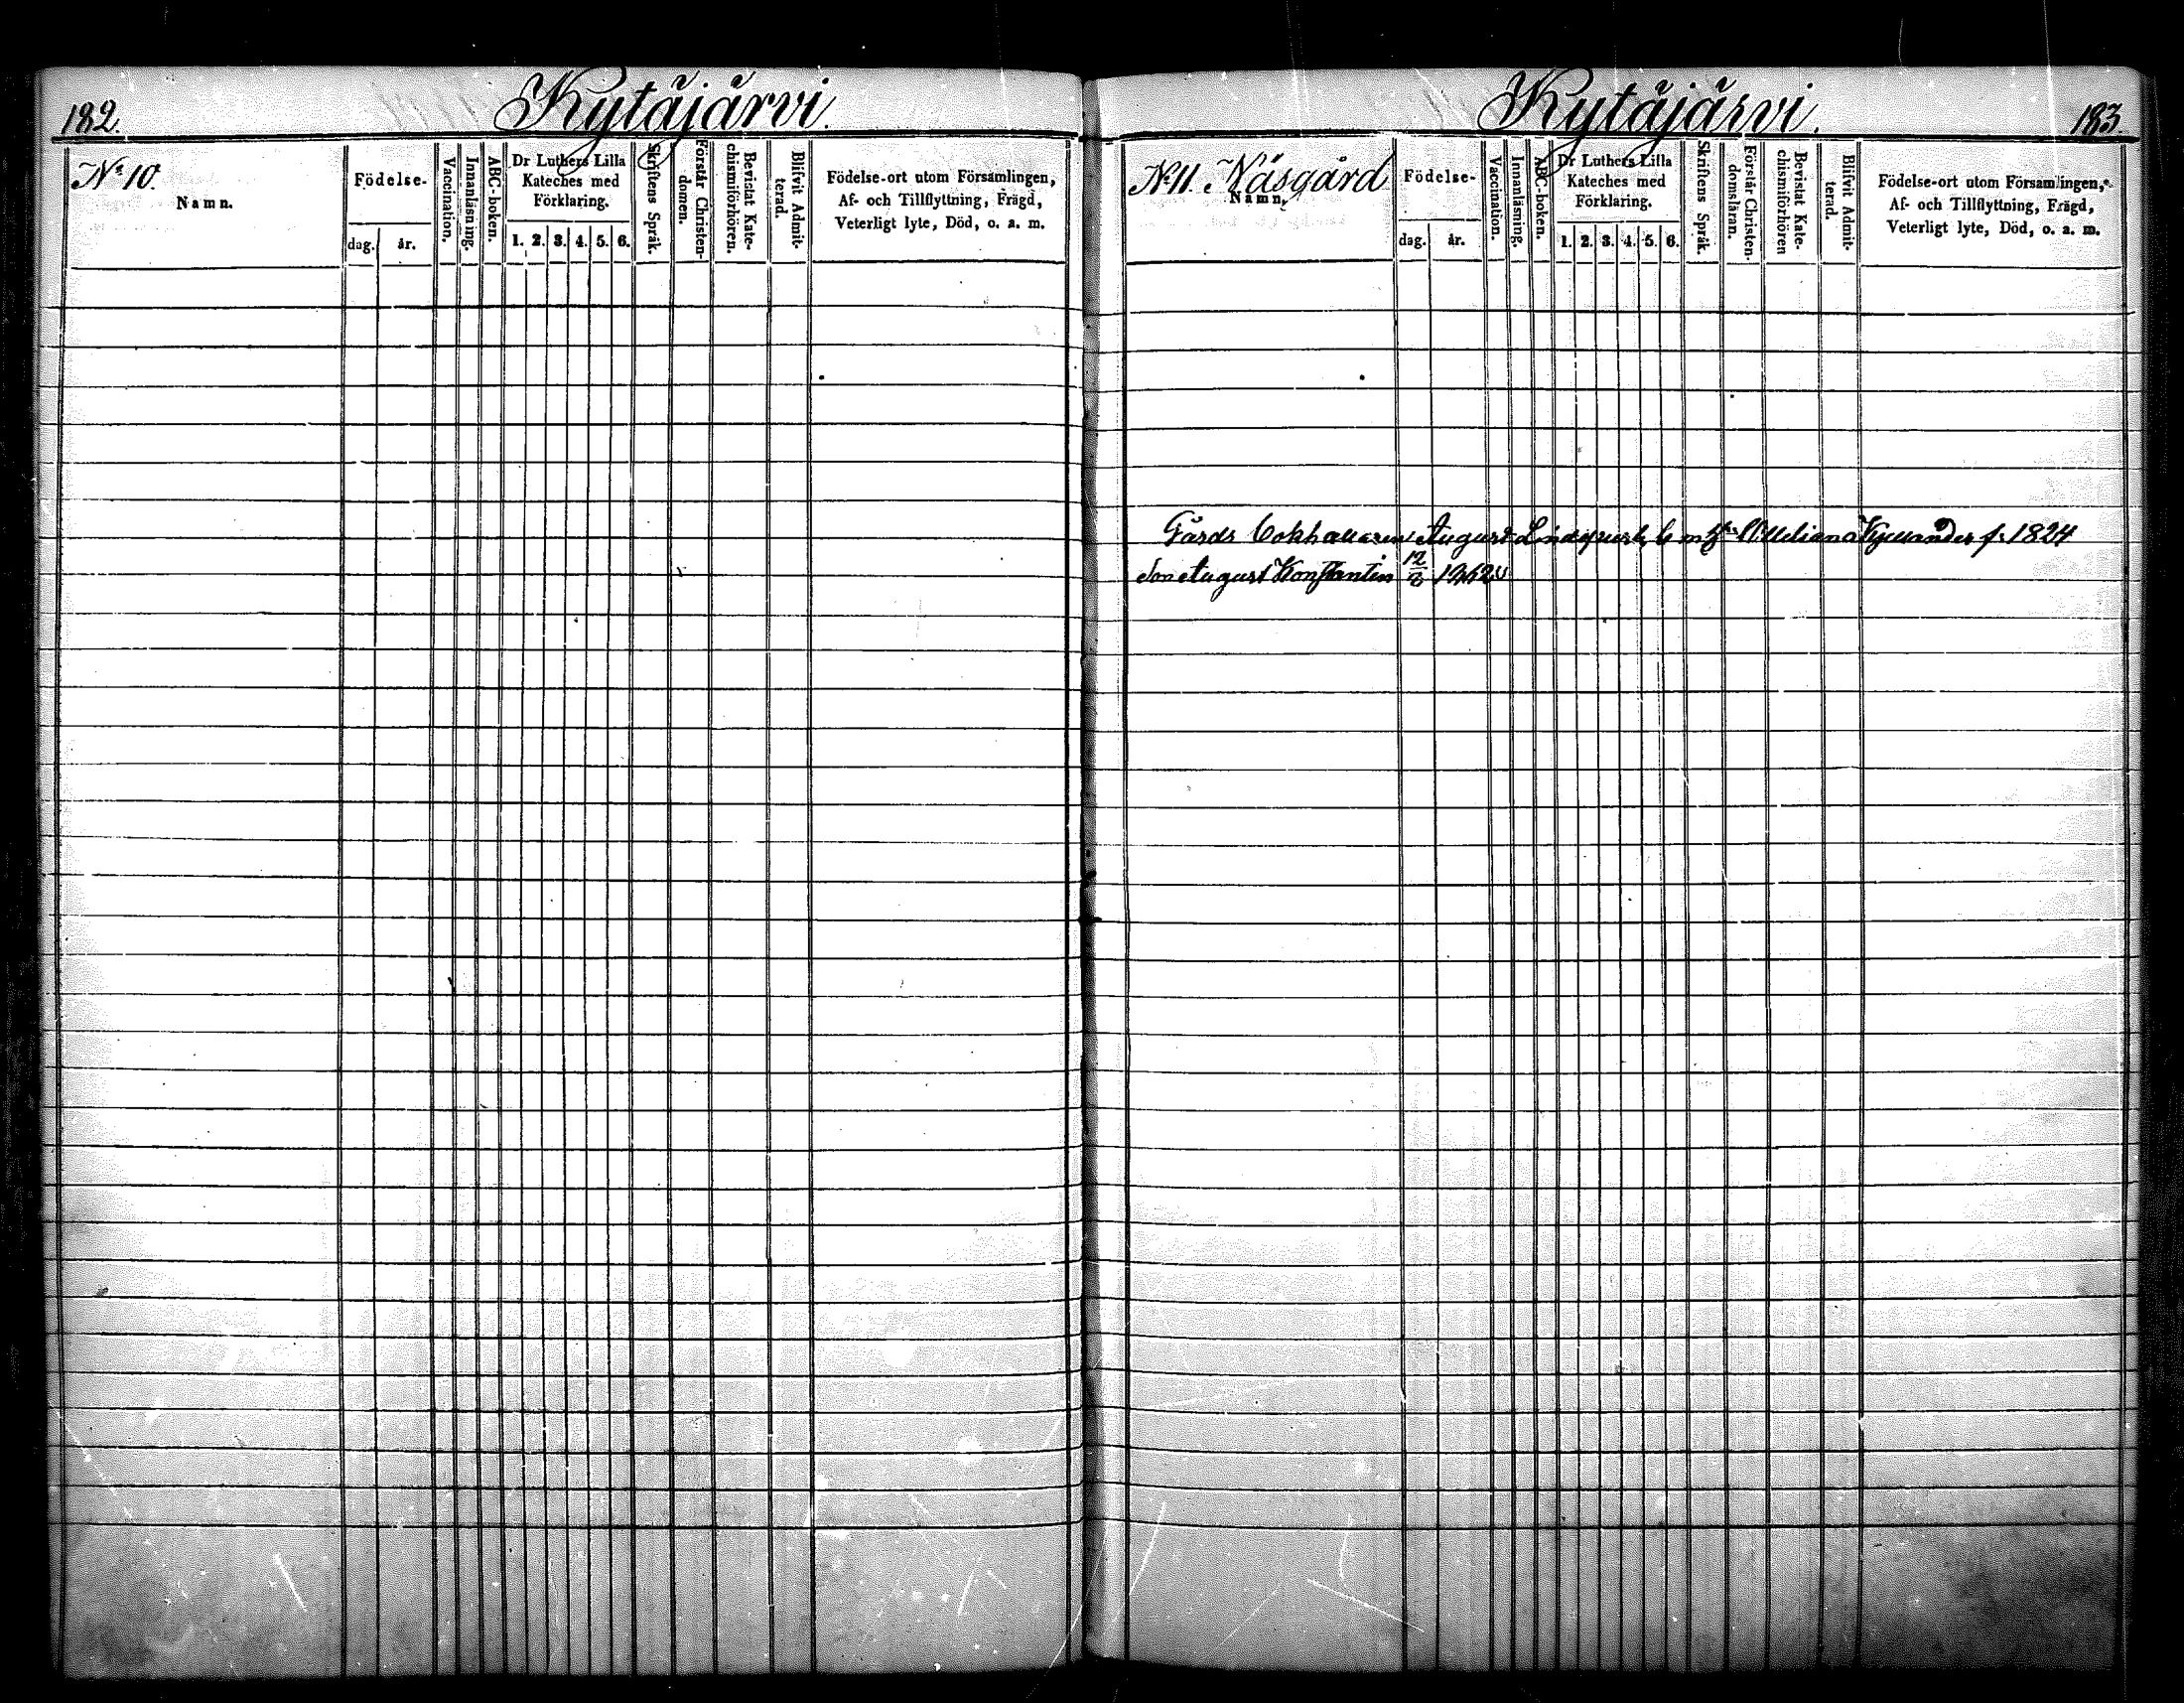 182.
Kytäjärvi.
No 10.
Namn.
Födelse-
dag.
år.
Vaccination.
Innanläsning.
ABC-boken.
Dr Luthers Lilla
Kateches med
Förklaring.
1. 2. 3. 4. 5. 6.
Skriftens Språk.
Förstår Christen-
domen.
Bevistat Kate-
chismiförhören.
Blifvit Admit-
terad.
Födelse-ort utom Församlingen,
Af- och Tillflyttning, Frägd,
Veterligt lyte, Död, o. a. m.
Kytäjärvi.
183.
No 11. Näsgård
Namn.
Födelse-
dag.
år.
Vaccination.
Innanläsning.
ABC-boken.
Dr Luthers Lilla
Kateches med
Förklaring.
1. 2. 3. 4. 5. 6.
Skriftens Språk.
Förstår Christen-
domsläran.
Bevistat Kate-
chismiförhören
Blifvit Admit-
terad.
Födelse-ort utom Församlingen,
Af- och Tillflyttning, Frägd,
Veterligt lyte, Död, o. a. m.
Gårds August f. 1824
Son August Konstantin 12/8 1862